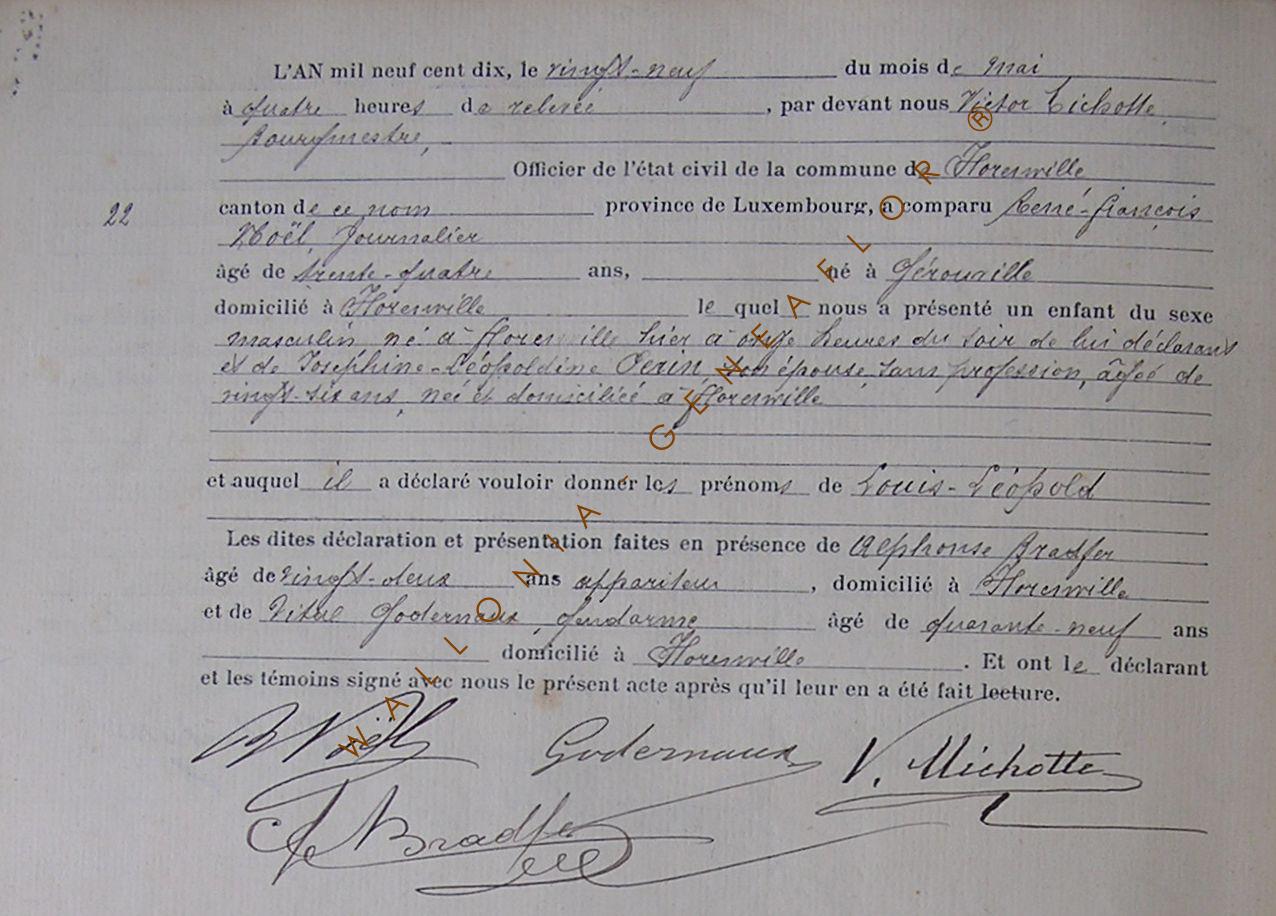 L'AN mil neuf cent dix, le vingt-neuf du mois de Mai
à quatre heures de relevée, par devant nous Victor Michotte,
bourgmestre,
Officier de l'état civil de la commune de Florenville
22 canton de ce nom province de Luxembourg, a comparu René-François
Noël, Journalier
âgé de trente-quatre ans, né à Gérouville
domicilié à Florenville lequel nous a présenté un enfant du sexe
masculin né à Florenville hier à onze heures du soir de lui déclarant
et de Joséphine-Léopoldine Perin son épouse, sans profession, âgée de
vingt-six ans, née et domiciliée à Florenville
et auquel il a déclaré vouloir donner les prénoms de Louis-Léopold
Les dites déclaration et présentation faites en présence de Alphonse Bradfer
âgé de vingt-deux ans appariteur, domicilié à Florenville
et de Vital Godernaux, gendarme âgé de quarante-neuf ans
domicilié à Florenville. Et ont le déclarant
et les témoins signé avec nous le présent acte après qu'il leur en a été fait lecture.
R Noël Godernaux V. Michotte
A Bradfer
WALLONIA - GENEAFLOR ®